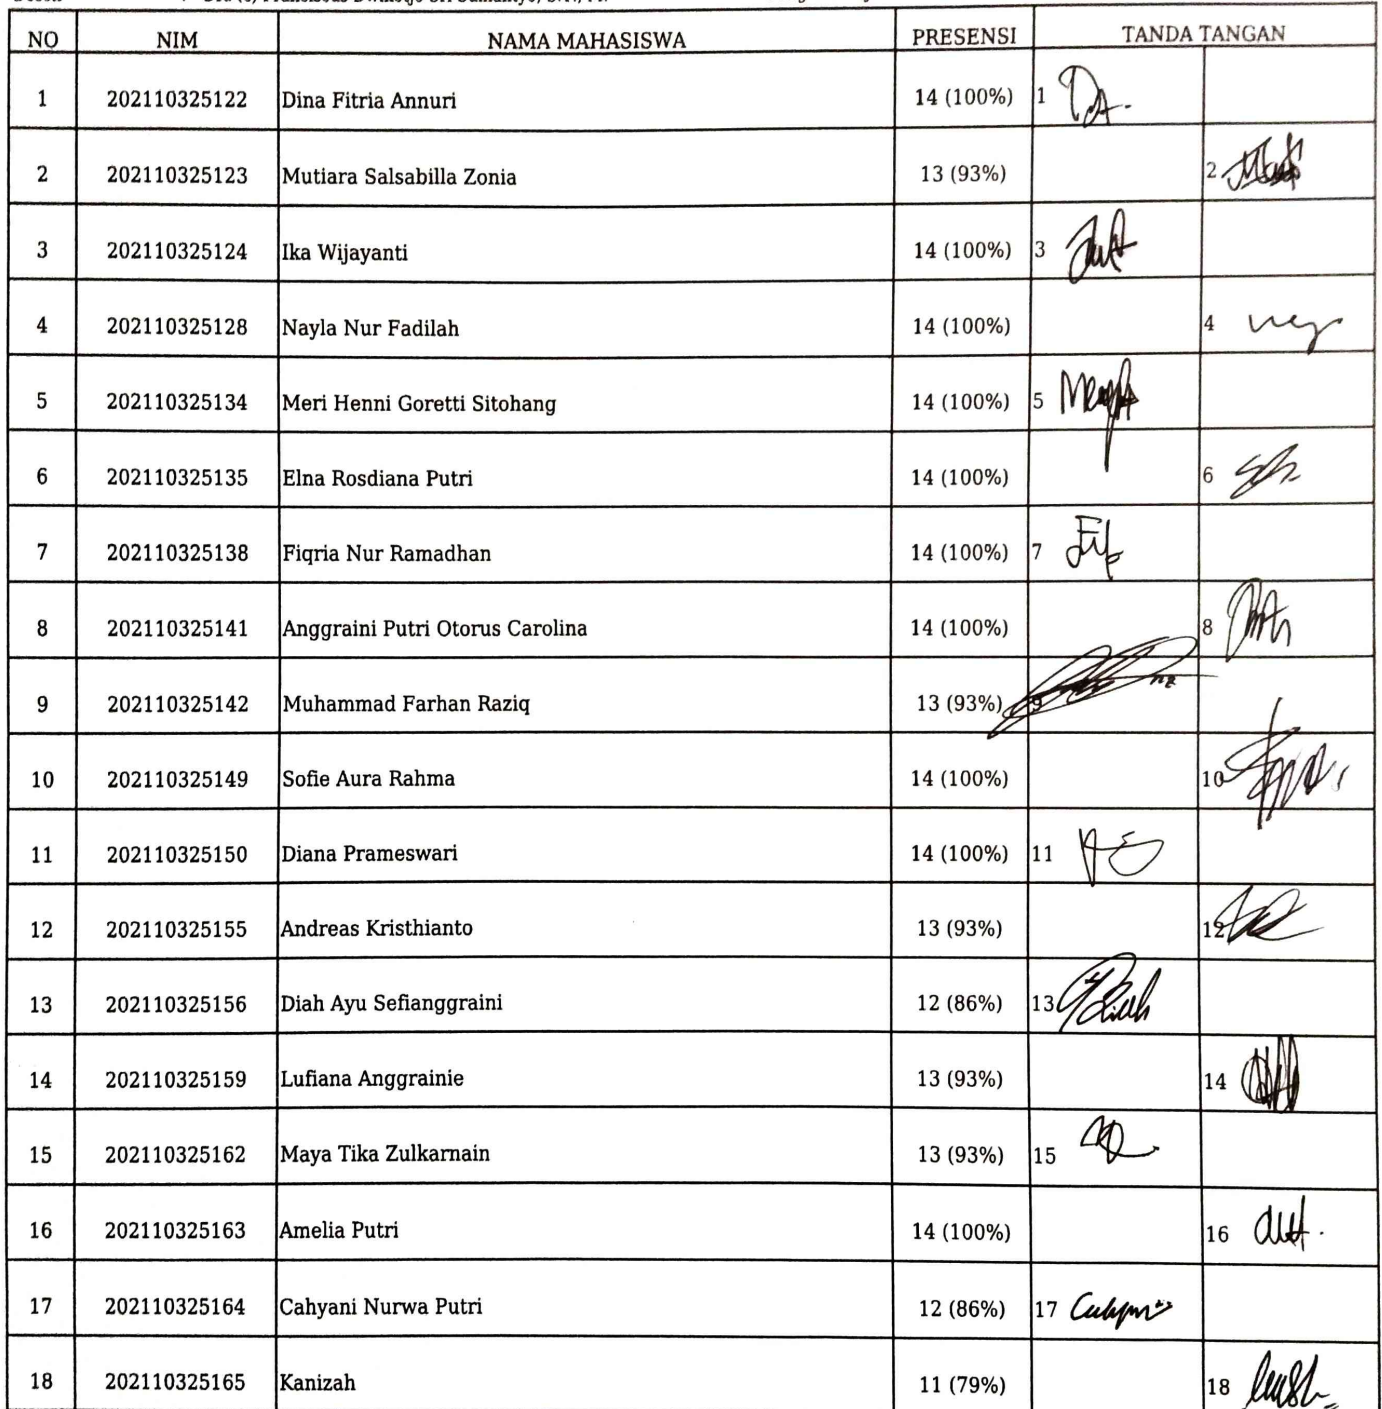 NO NIM NAMA MAHASISWA PRESENSI TANDA TANGAN
1 202110325122 Dina Fitria Annuri 14 (100%) 1
2 202110325123 Mutiara Salsabilla Zonia 13 (93%) 2
3 202110325124 Ika Wijayanti 14 (100%) 3
4 202110325128 Nayla Nur Fadilah 14 (100%) 4
5 202110325134 Meri Henni Goretti Sitohang 14 (100%) 5
6 202110325135 Elna Rosdiana Putri 14 (100%) 6
7 202110325138 Fiqria Nur Ramadhan 14 (100%) 7
8 202110325141 Anggraini Putri Otorus Carolina 14 (100%) 8
9 202110325142 Muhammad Farhan Raziq 13 (93%) 9
10 202110325149 Sofie Aura Rahma 14 (100%) 10
11 202110325150 Diana Prameswari 14 (100%) 11
12 202110325155 Andreas Kristhianto 13 (93%) 12
13 202110325156 Diah Ayu Sefianggraini 12 (86%) 13
14 202110325159 Lufiana Anggrainie 13 (93%) 14
15 202110325162 Maya Tika Zulkarnain 13 (93%) 15
16 202110325163 Amelia Putri 14 (100%) 16
17 202110325164 Cahyani Nurwa Putri 12 (86%) 17
18 202110325165 Kanizah 11 (79%) 18